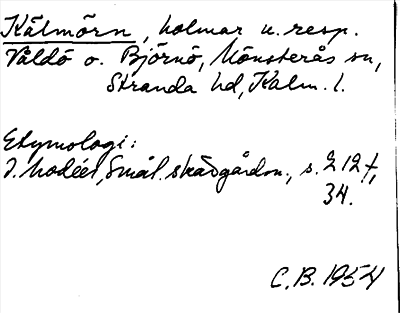 Kälmörn, holmar u. resp.
Våldö o. Björnö, Mönsterås sn,
Stranda hd, Kalm. l.
Etymologi:
I. Modéer, Smål. skärgårdsn., s. 212 f,
34.
C.B. 1954